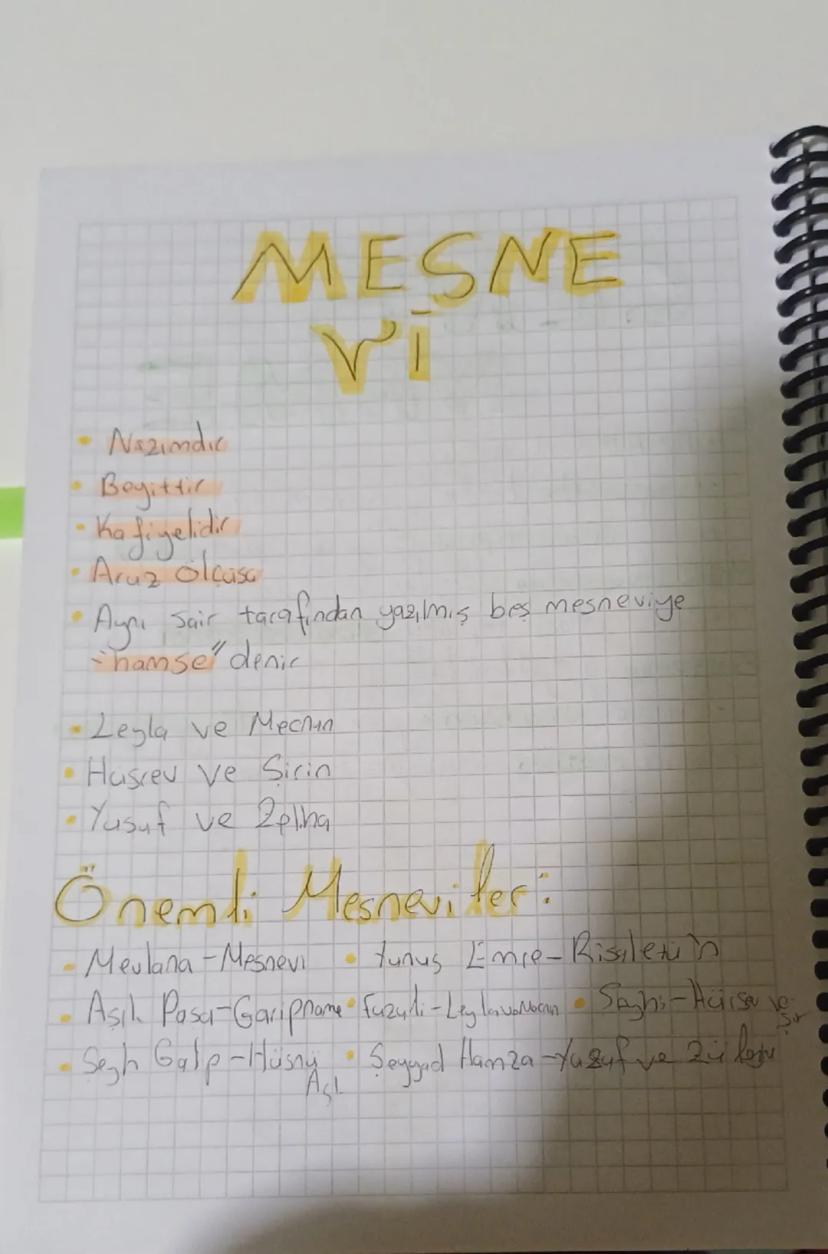 MESNE
Vİ
• Nazımdır
• Beyittir
• Kafiyelidir
• Aruz ölçüsü
• Aynı şair tarafından yazılmış beş mesneviye
"hamse" denir
• Leyla ve Mecnun
• Husrev ve Şirin
• Yusuf ve
Önemli Mesneviler:
• Mevlana-Mesnevi • Yunus Emre-Risaletü'n
• Aşık Paşa-Garipname • Fuzuli-Leyla ve Mecnun • Şeyhi-
• Şeyh Galip-Hüsnü • Şeyyad Hamza-Yusuf ve
Aşk